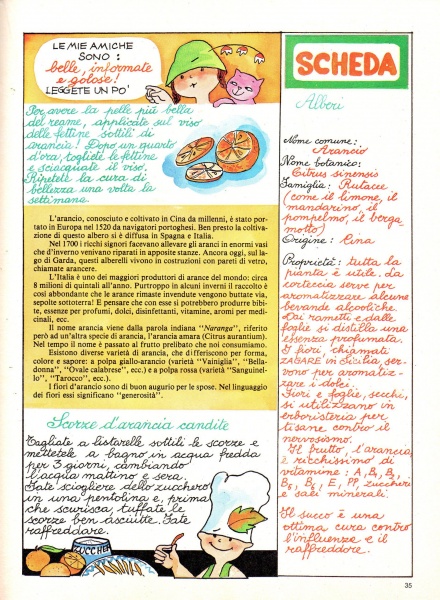 LE MIE AMICHE
SONO:
belle, informate
e golose!
LEGGETE UN PO'
Per avere la pelle più bella
del reame, applicate sul viso
delle fettine sottili di
arancia! Dopo un quarto
d'ora, togliete le fettine
e sciacquate il viso.
Ripetete la cura di
bellezza una volta la
settimana.
L'arancio, conosciuto e coltivato in Cina da millenni, è stato por-
tato in Europa nel 1520 da navigatori portoghesi. Ben presto la coltiva-
zione di questo albero si è diffusa in Spagna e Italia.
Nel 1700 i ricchi signori facevano allevare gli aranci in enormi vasi
che d'inverno venivano riparati in apposite stanze. Ancora oggi, sul la-
go di Garda, questi alberelli vivono in costruzioni con pareti di vetro,
chiamate aranciere.
L'Italia è uno dei maggiori produttori di arance del mondo: circa
8 milioni di quintali all'anno. Purtroppo in alcuni inverni il raccolto è
così abbondante che le arance rimaste invendute vengono buttate via,
sepolte sottoterra! E pensare che con esse si potrebbero produrre bibi-
te, essenze per profumi, dolci, disinfettanti, vitamine, aromi per medi-
cinali, ecc.
Il nome arancia viene dalla parola indiana "Naranga", riferito
però ad un'altra specie di arancia, l'arancia amara (Citrus aurantium).
Nel tempo il nome è passato al frutto prelibato che noi consumiamo.
Esistono diverse varietà di arancia, che differiscono per forma,
colore e sapore: a polpa giallo-arancio (varietà "Vainiglia", "Bella-
donna", "Ovale calabrese", ecc.) e a polpa rossa (varietà "Sanguinel-
lo", "Tarocco", ecc.).
I fiori d'arancio sono di buon augurio per le spose. Nel linguaggio
dei fiori essi significano "generosità".
Scorze d'arancia candite
Tagliate a listarelle sottili le scorze e
mettetele a bagno in acqua fredda
per 3 giorni, cambiando
l'acqua mattino e sera.
Fate sciogliere dello zucchero
in una pentolina e, prima
che scurisca, tuffate le
scorze ben asciutte. Fate
raffreddare.
ZUCCHER
SCHEDA
Alberi
Nome comune:
Arancio
Nome botanico:
Citrus sinensis
Famiglia: Rutacee
(come il limone, il
mandarino, il
pompelmo, il berga-
motto)
Origine: Cina
Proprietà: tutta la
pianta è utile. La
corteccia serve per
aromatizzare alcune
bevande alcoliche.
Dai rametti e dalle
foglie si distilla una
essenza profumata.
I fiori, chiamati
ZAGARE in Sicilia, ser-
vono per aromatiz-
zare i dolci.
Fiori e foglie, secchi,
si utilizzano in
erboristeria per
tisane contro il
nervosismo.
Il frutto, l'arancia,
è ricchissimo di
vitamine: A, B1, B2,
B5, B6, E, PP, zuccheri
e sali minerali.
Il succo è una
ottima cura contro
l'influenza e il
raffreddore.
35